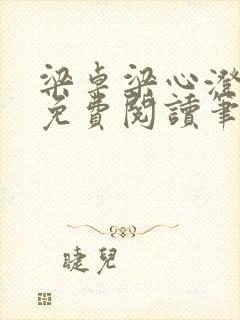 梁卓梁心澄
免費閱讀筆
睫兒